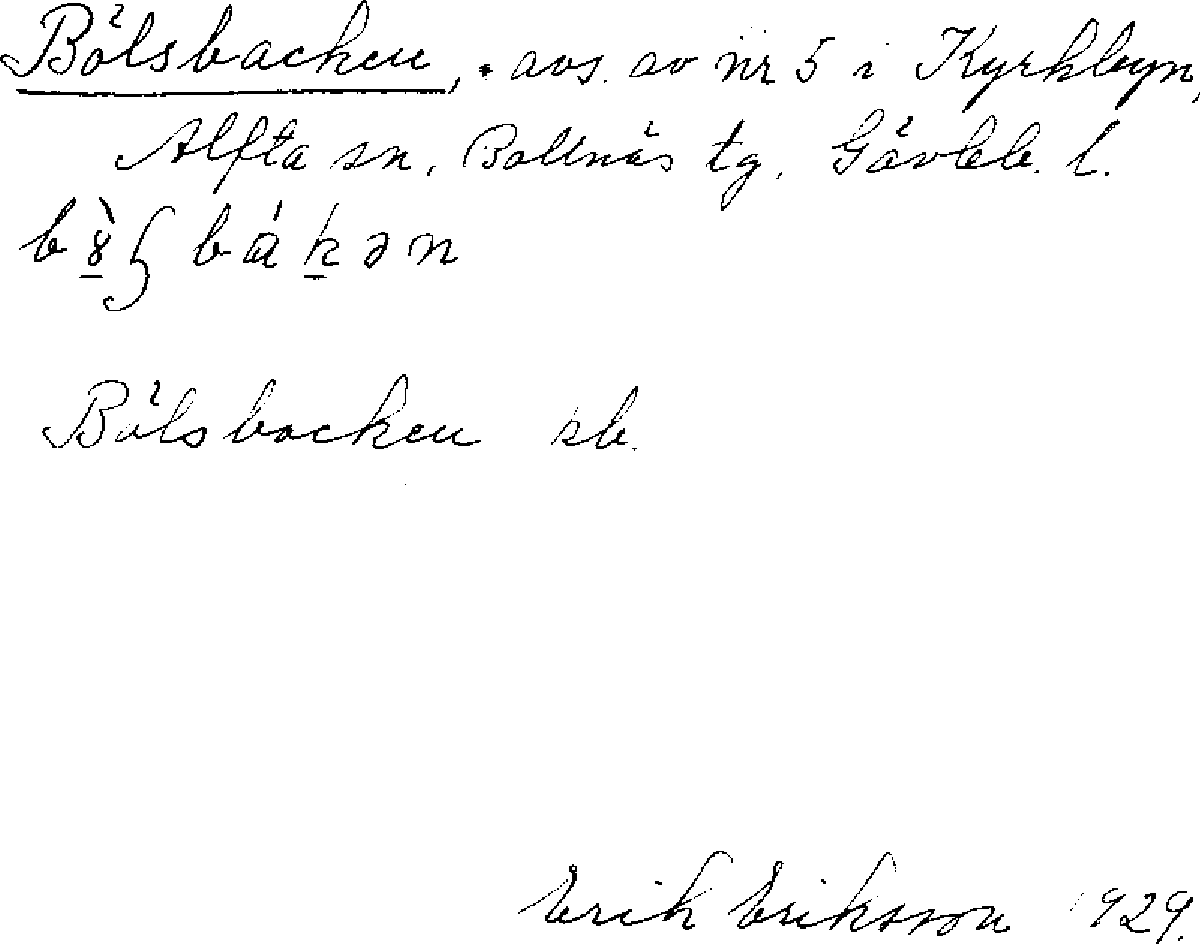 Bölsbacken, • avs. av nr 5 i Kyrkbyn,
Alfta sn, Bollnäs tg. Gävleb. l.
bákən
Bölsbacken sb.
Erik Eriksson 1929.